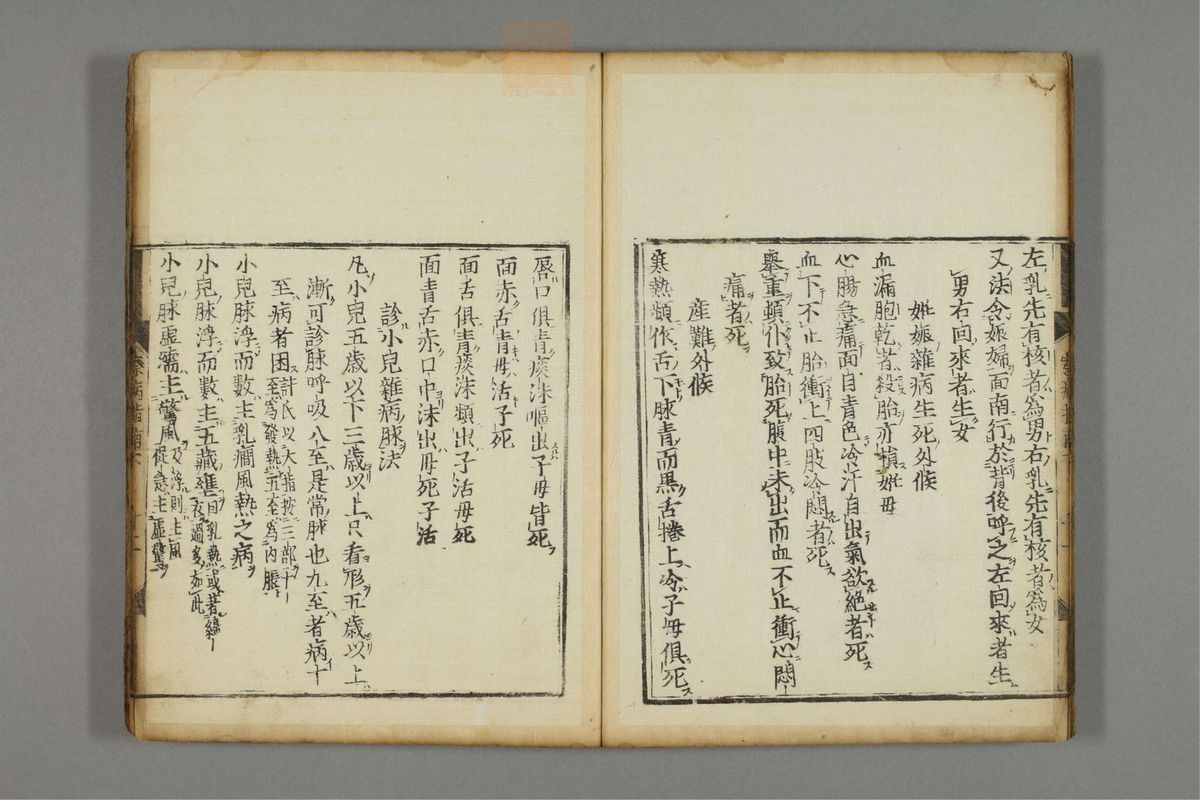 左乳先有核者為男右乳先有核者為女
又法令娠婦面南行於背後呼之左回來者生
男右回來者生女
妊娠雜病生死外候
血漏胞乾者殺胎亦損妊母
心腸急痛面目青色冷汗自出氣欲絕者死
血下不止胎衝上四肢冷悶者死
舉重頓仆致胎死腹中未出而血不止衝心悶
痛者死
產難外候
寒熱頻作舌下脉青而黑舌捲上冷子母俱死
唇口俱青痰沫嘔出子母皆死
面赤舌青母活子死
面舌俱青痰沫頻出子活母死
面青舌赤口中沫出母死子活
診小兒雜病脉法
凡小兒五歲以下三歲以上只看形五歲以上
漸可診脉呼吸八至是常脉也九至者病十
至病者困許氏以大指按三部十至為發熱五至為内脹
小兒脉浮而數主乳癇風熱之病
小兒脉浮而數主五藏壅因乳熱或著綿衣過多如此
小兒脉虛濡主驚風及浮則主風促急主虛驚